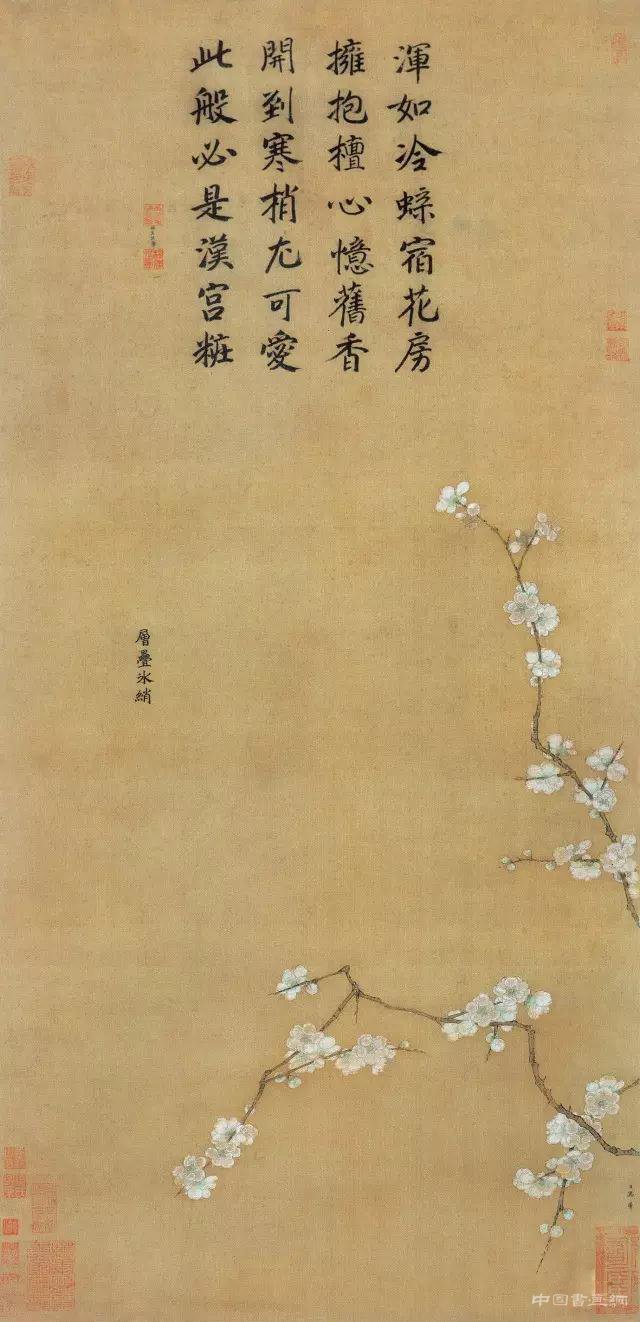 渾如冷蜨宿花房
擁抱檀心憶舊香
開到寒梢尤可愛
此般必是漢宮粧
層疊冰綃
中国書畫網